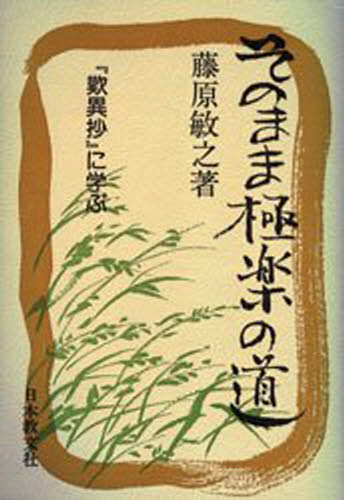 そのまま極楽の道
藤原敏之著
『歎異抄』に学ぶ
日本教文社